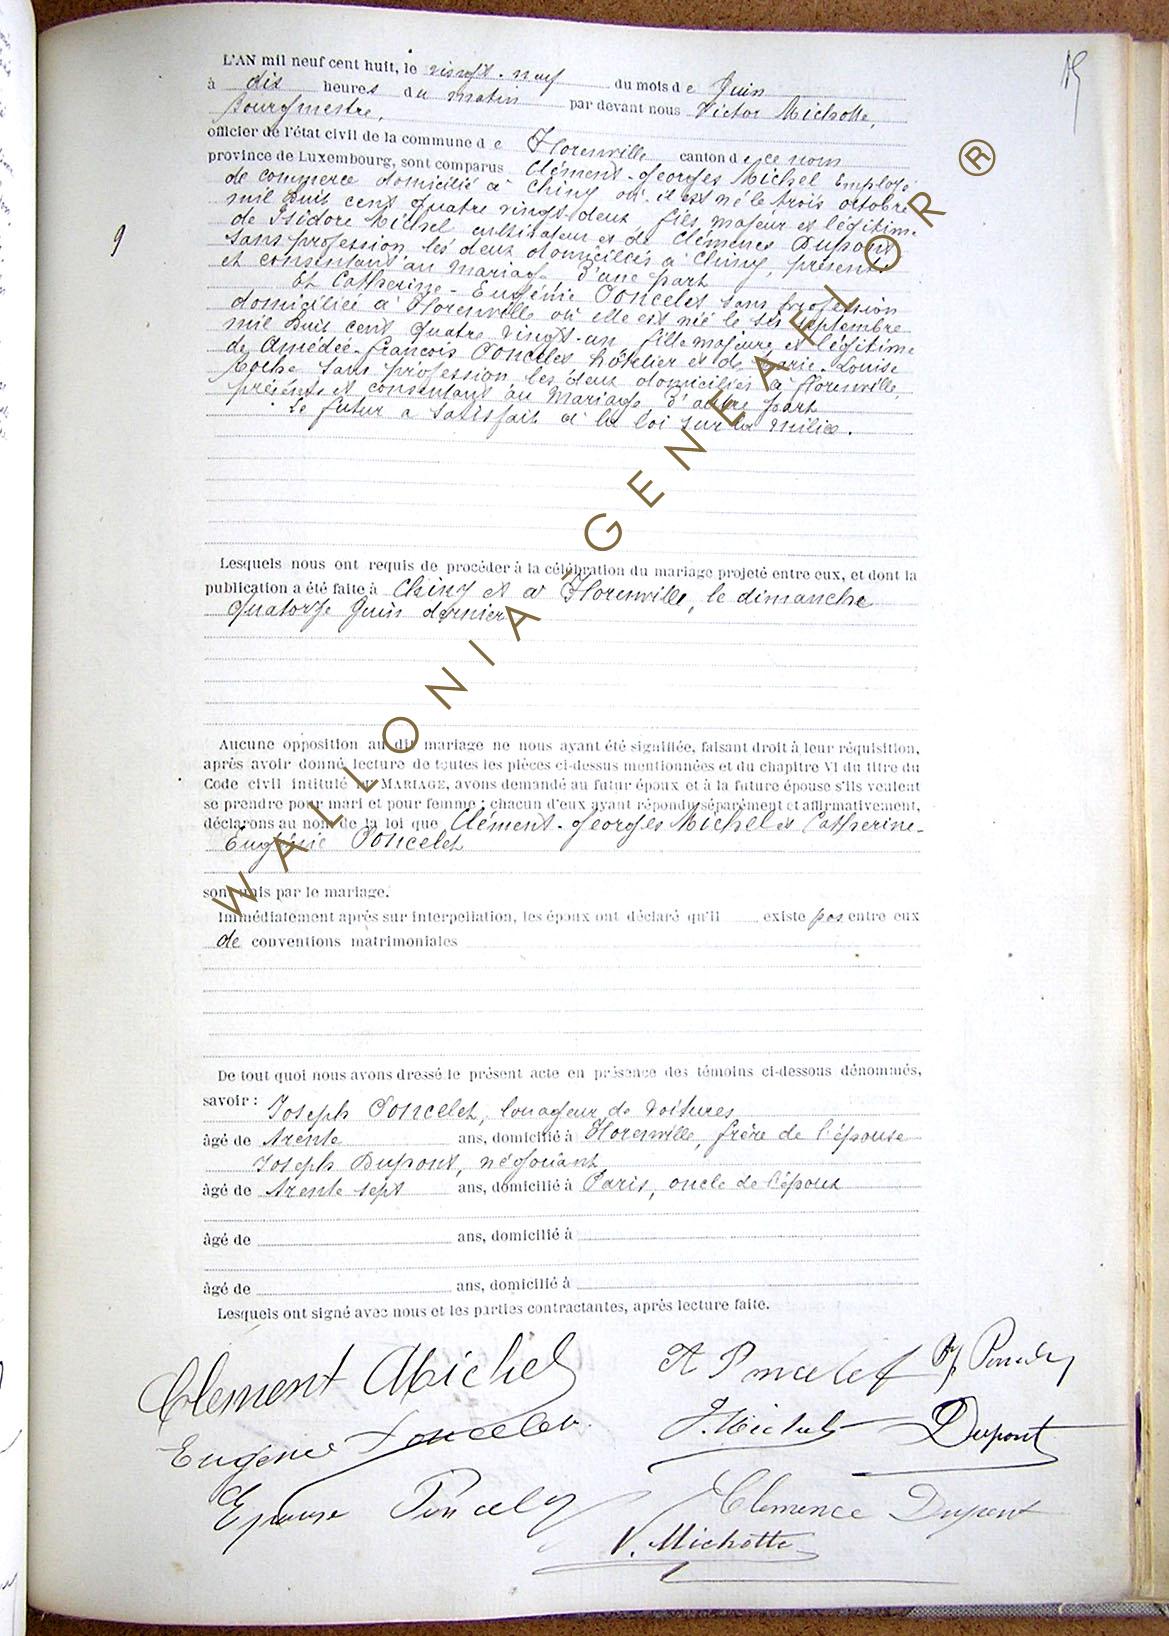 15
L'AN mil neuf cent huit, le vingt-neuf du mois de Juin
à dix heures du matin par devant nous Victor Michotte,
Bourgmestre,
officier de l'état civil de la commune de Florenville canton de ce nom
province de Luxembourg, sont comparus Clément-Georges Michel Employé
de commerce domicilié à Chiny où il est né le trois octobre
mil huit cent quatre vingt deux fils majeur et légitime
de Isidore Michel cultivateur et de Clémence Dupont
sans profession les deux domiciliés à Chiny, présents
et consentant au mariage d'une part
9
Et Catherine-Eugénie Poncelet sans profession
domiciliée à Florenville où elle est née le six septembre
mil huit cent quatre vingt-un fille majeure et légitime
de Amédée-François Poncelet hôtelier et de Marie-Louise
sans profession les deux domiciliés à Florenville,
présents et consentant au mariage d'autre part
Le futur a satisfait à la loi sur la milice.
Lesquels nous ont requis de procéder à la célébration du mariage projeté entre eux, et dont la
publication a été faite à Chiny et à Florenville, le dimanche
quatorze Juin dernier
Aucune opposition au dit mariage ne nous ayant été signifiée, faisant droit à leur réquisition,
après avoir donné lecture de toutes les pièces ci-dessus mentionnées et du chapitre VI du titre du
Code civil intitulé DU MARIAGE, avons demandé au futur époux et à la future épouse s'ils veulent
se prendre pour mari et pour femme ; chacun d'eux ayant répondu séparément et affirmativement,
déclarons au nom de la loi que Clément-Georges Michel et Catherine-
Eugénie Poncelet
sont unis par le mariage.
Immédiatement après sur interpellation, les époux ont déclaré qu'il existe pas entre eux
de conventions matrimoniales
De tout quoi nous avons dressé le présent acte en présence des témoins ci-dessous dénommés,
savoir : Joseph Poncelet, louageur de voitures
âgé de trente ans, domicilié à Florenville, frère de l'épouse
Joseph Dupont, négociant
âgé de trente sept ans, domicilié à Paris, oncle de l'époux
âgé de ans, domicilié à
âgé de ans, domicilié à
Lesquels ont signé avec nous et les parties contractantes, après lecture faite.
Clément Michel A Poncelet Poncelet
Eugénie Poncelet J. Michel Dupont
Epouse Poncelet Clémence Dupont
V. Michotte
WALLONIA GENEAFLOR ®